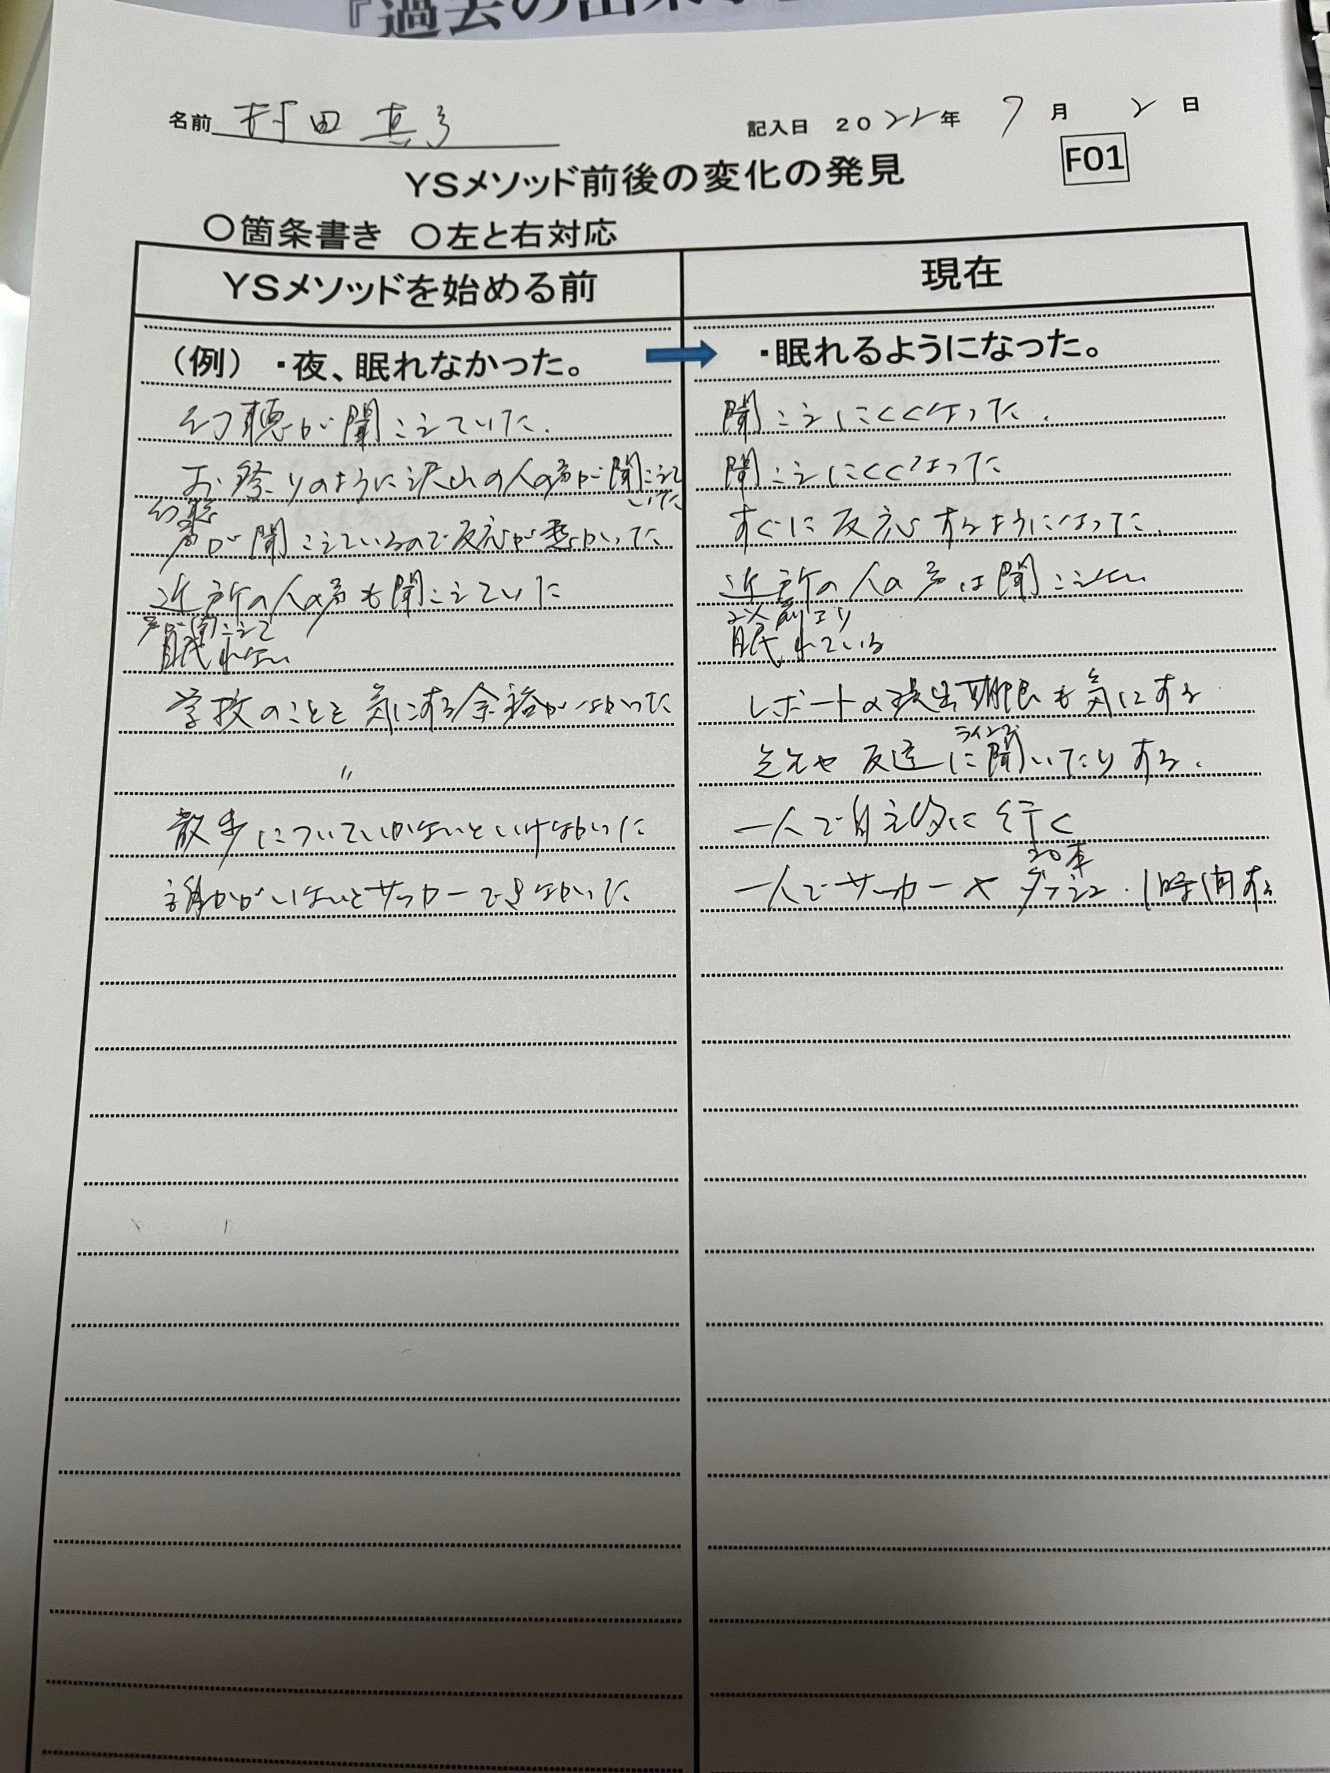 『過去の出来事
名前 村田 真弓 記入日 2022年 9月 2日
F01
YSメソッド前後の変化の発見
○箇条書き ○左と右対応
YSメソッドを始める前 現在
(例) ・夜、眠れなかった。 ・眠れるようになった。
幻聴が聞こえていた. 聞こえにくくなった.
お祭りのように沢山の人の声が聞こえていた 聞こえにくくなった
幻聴
声が聞こえているので反応が悪かった すぐに反応するようになった.
近所の人の声も聞こえていた 近所の人の声は聞こえない
声が聞こえて 以前より
眠れない 眠れている
学校のことを気にする余裕がなかった レポートの提出期限も気にする
ラインで
〃 先生や友達に聞いたりする.
散歩についていかないといけなかった 一人で自主的に行く
20本
誰かがいないとサッカーできなかった 一人でサッカーやダッシュ.1時間する